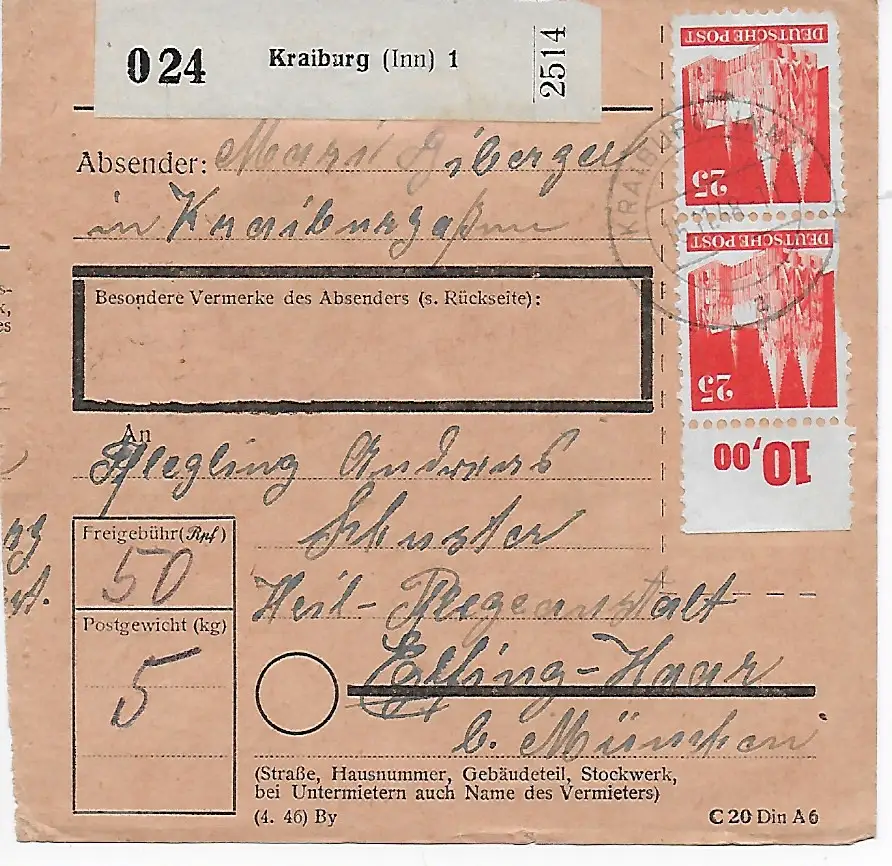 024 Kraiburg (Inn) 1 2514
DEUTSCHE POST
25
DEUTSCHE POST
25
10,00
KRAIBURG (INN)
a
Absender: Mari
in Kraiburg a/Inn
Besondere Vermerke des Absenders (s. Rückseite):
An
Pflegling Andreas
Schuster
Freigebühr (Rpf)
50
Heil- Pflegeanstalt
Postgewicht (kg)
5
Egfing-Haar
b. München
(Straße, Hausnummer, Gebäudeteil, Stockwerk,
bei Untermietern auch Name des Vermieters)
(4. 46) By
C 20 Din A 6